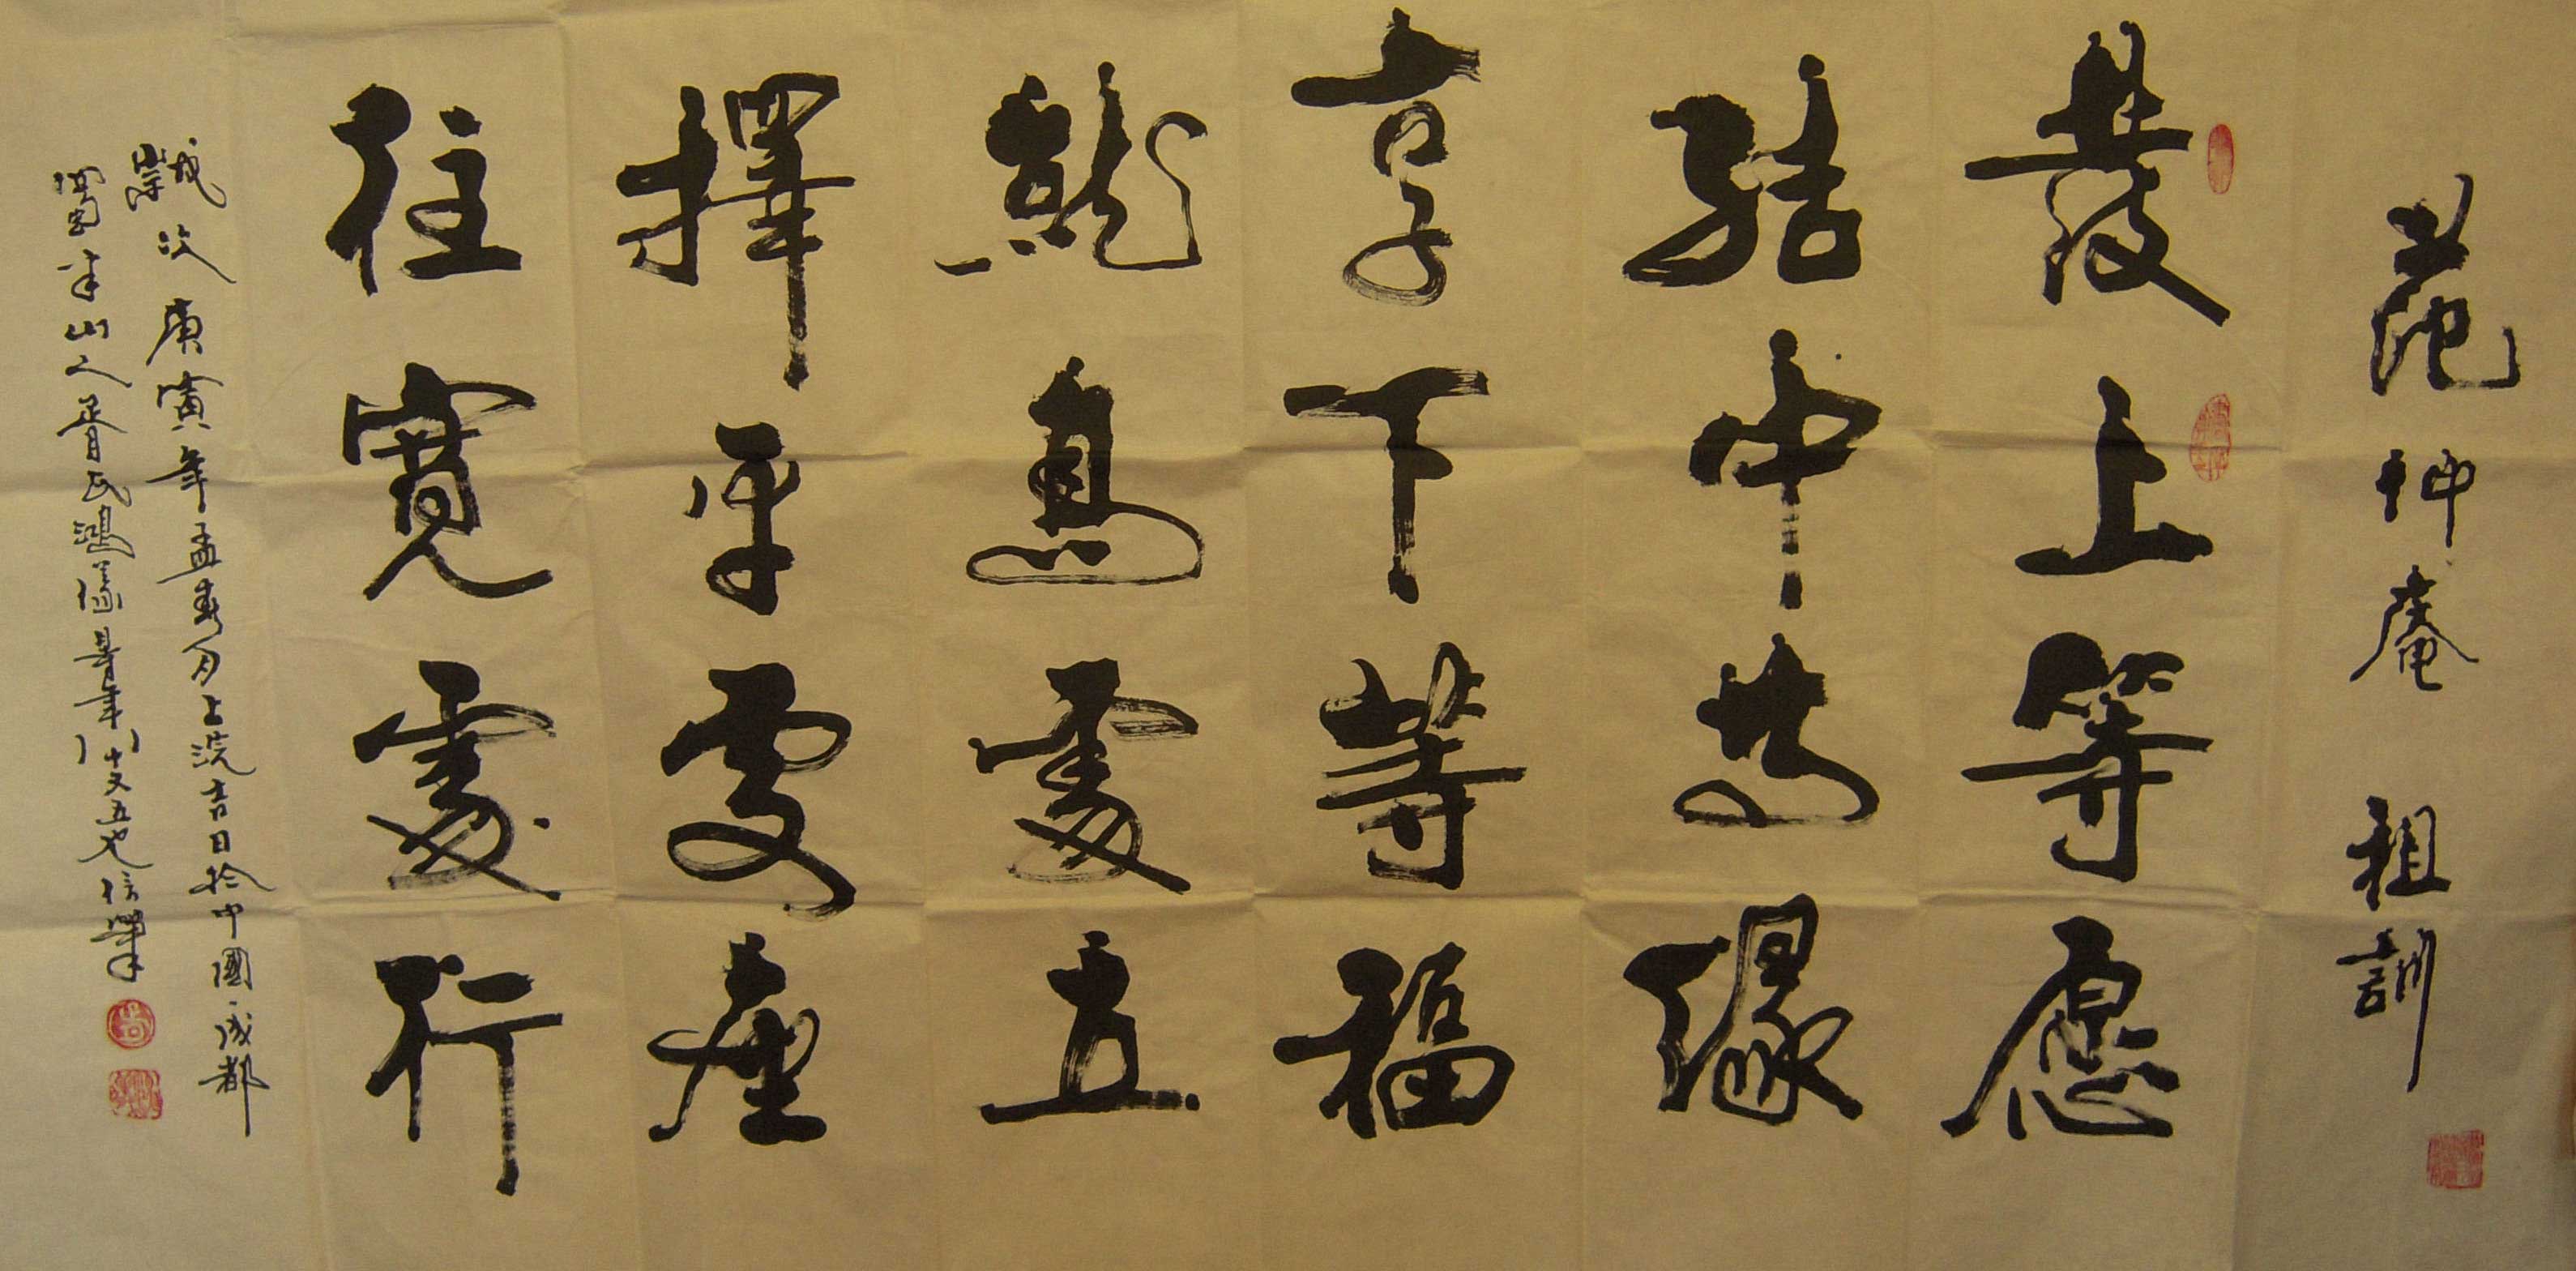 范坤庵 祖訓
發上等愿
结中等缘
享下等福
就高處立
擇平處座
往寬處行
歲次庚寅年孟春月上浣吉日於中國成都
蜀羊山人胥氏鴻 年八十又五也信筆